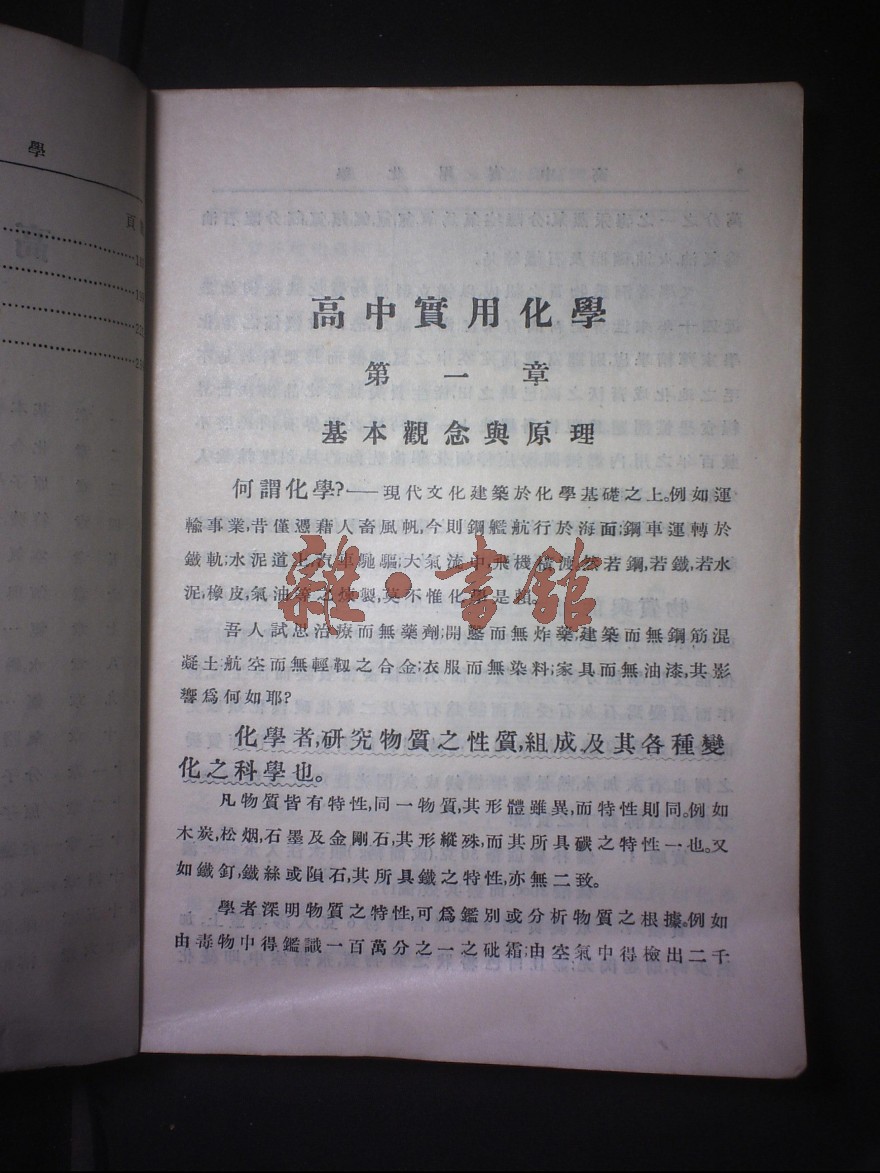 學
頁
高中實用化學
第一章
基本觀念與原理
何謂化學?——現代文化建築於化學基礎之上。例如運
輸事業,昔僅憑藉人畜風帆,今則鋼艦航行於海面;鋼車運轉於
鐵軌;水泥道上,汽車馳驅;大氣流中,飛機橫渡。然若鋼,若鐵,若水
泥,橡皮,氣油等之煉製,莫不惟化學是賴。
雜·書館
吾人試思治療而無藥劑;開鑿而無炸藥;建築而無鋼筋混
凝土;航空而無輕靱之合金;衣服而無染料;家具而無油漆,其影
響爲何如耶?
化學者,研究物質之性質,組成,及其各種變
化之科學也。
凡物質皆有特性,同一物質,其形體雖異,而特性則同。例如
木炭,松烟,石墨及金剛石,其形縱殊,而其所具碳之特性一也。又
如鐵釘,鐵絲或隕石,其所具鐵之特性,亦無二致。
學者深明物質之特性,可爲鑑別或分析物質之根據。例如
由毒物中得鑑識一百萬分之一之砒霜;由空氣中得檢出二千